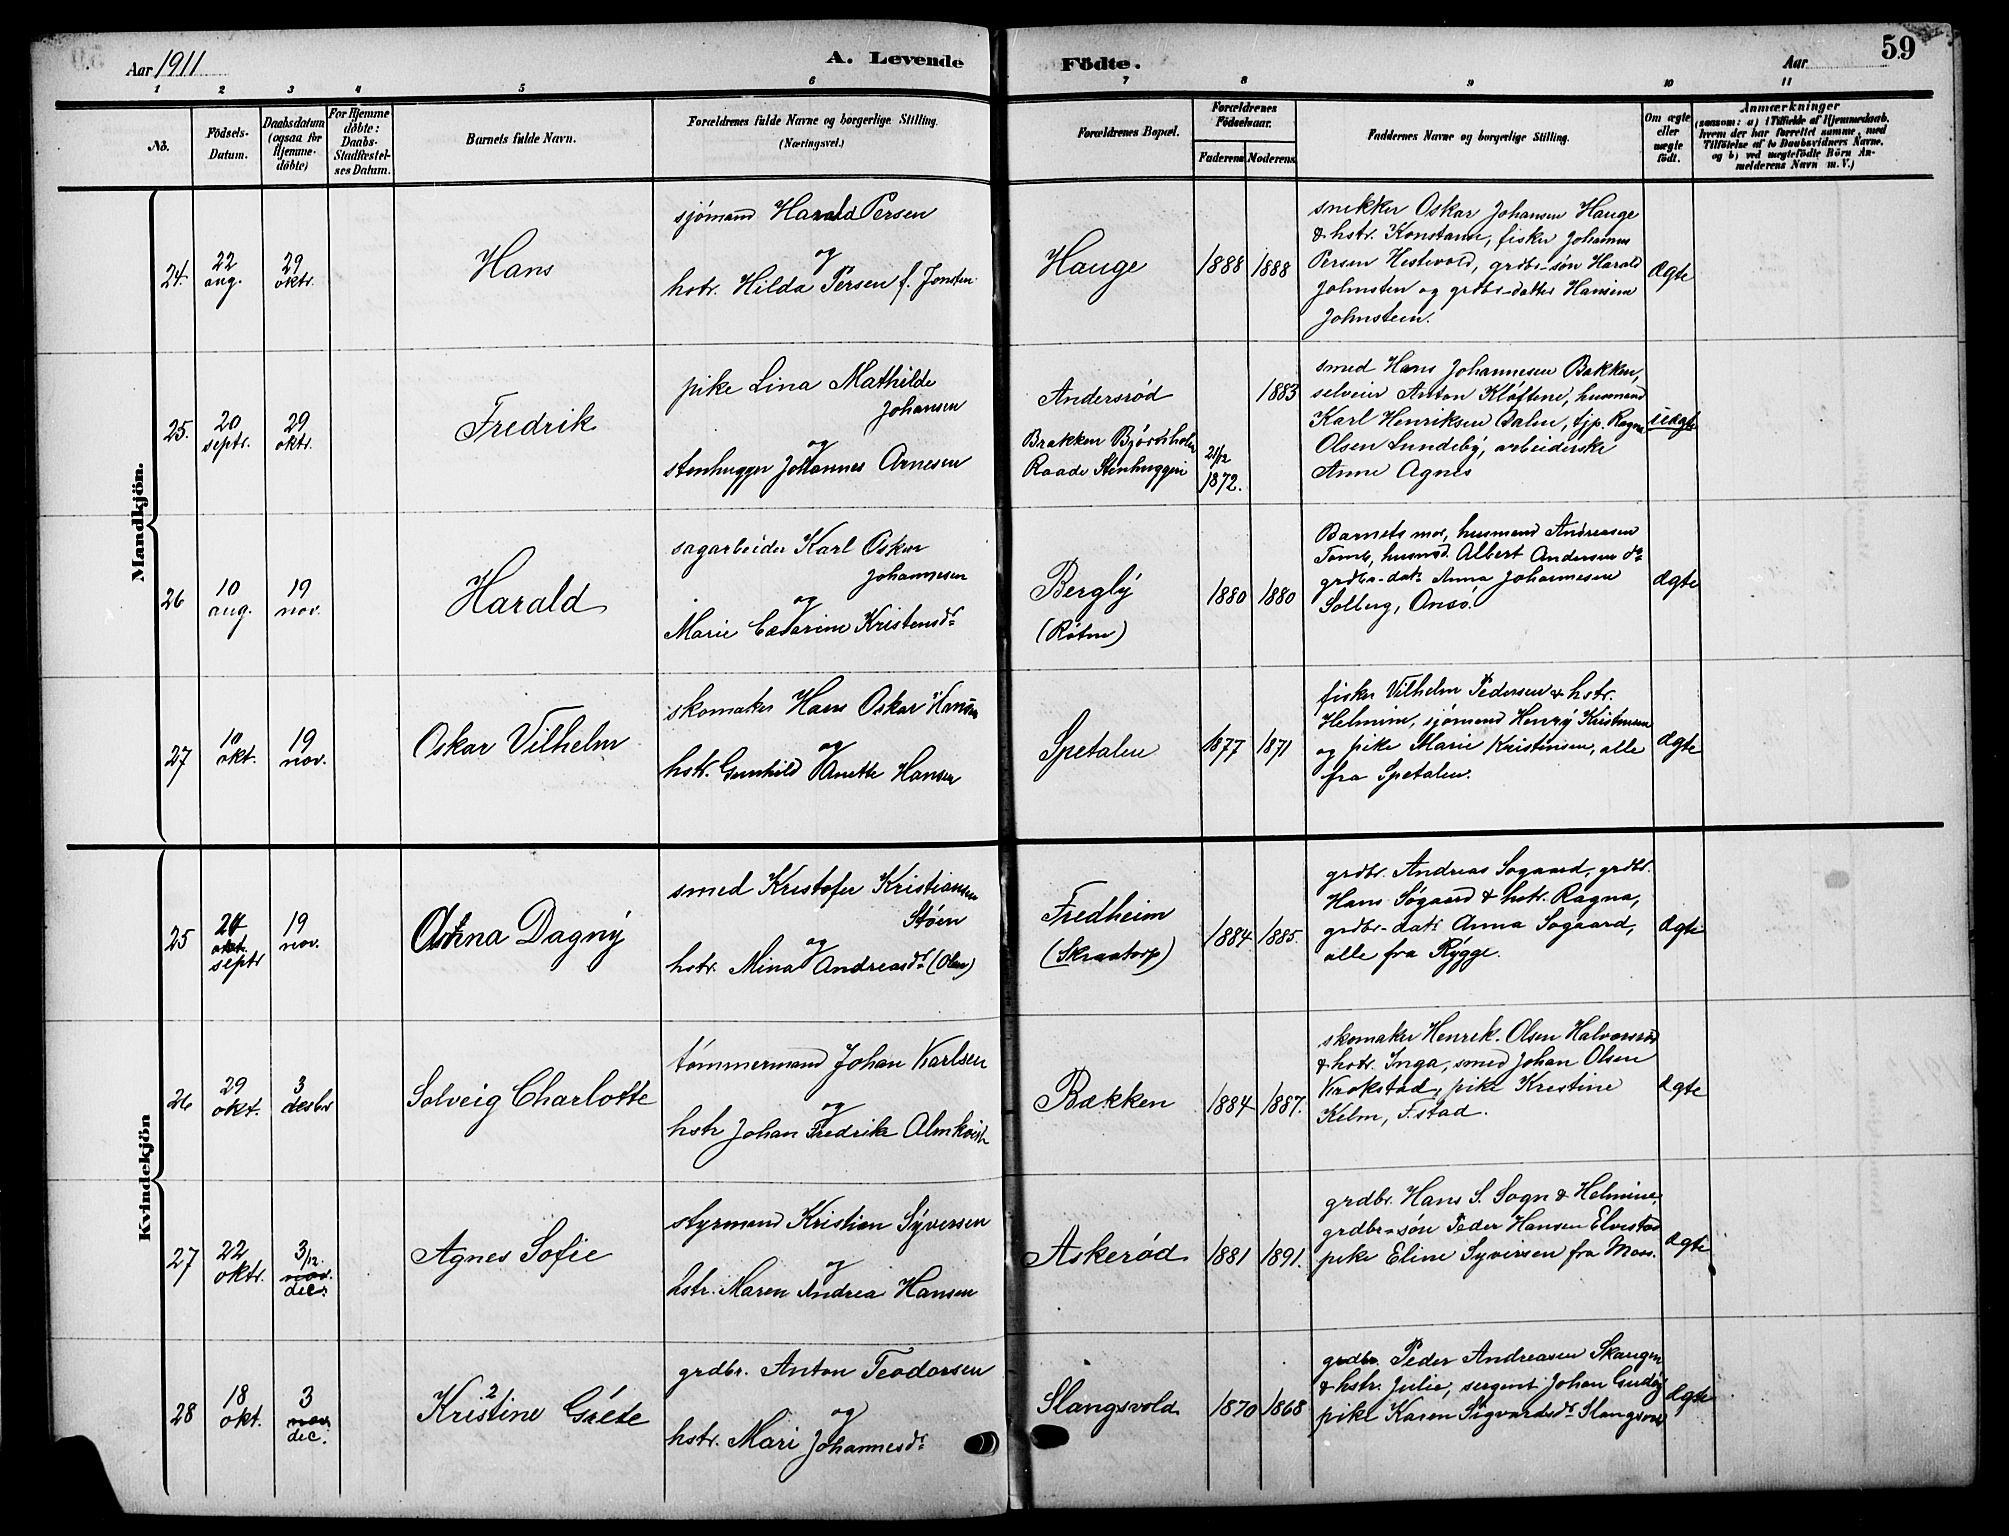 59
Aar 1911
A. Levende Fødte.
Aar
1 2 3 4 5 6 7 8 9 10 11
No.
Fødsels-
Datum.
Daabsdatum
(ogsaa for
Hjemme-
døbte)
For Hjemme
døbte:
Daabs-
Stadfæstel-
ses Datum.
Barnets fulde Navn.
Forældrenes fulde Navne og borgerlige Stilling.
(Næringsvei.)
Forældrenes Bopæl.
Forældrenes
Fødselsaar.
Faderens
Moderens.
Faddernes Navne og borgerlige Stilling.
Om ægte
eller
uægte
født.
Anmærkninger
(saasom: a) i Tilfælde af Hjemmedaab,
hvem der har forrettet samme, med
Tilføielse af to Daabsvidners Navne,
og b) ved uægtefødte Børn An-
melderens Navn m. V.)
Mandkjön.
24.
22
aug.
29
oktr.
Hans
sjömand Harald Persen
og
hstr. Hilda Persen f. Jonsten
Hauge
1888
1888
snekker Oskar Johansen Hauge
& hstr. Konstanse, fisker Johannes
Persen Hestevold, grdbr-søn Harald
Johnsten og grdbr-datter Hansine
Johnstein.
Ægte
25.
20
septr.
29
oktr.
Fredrik
pike Lina Mathilde
Johansen
og
stenhugger Johannes Arnesen
Andersrød
Brakken Bjørnsholm
Raade Stenhuggeri
21/12
1872.
1883
smed Hans Johannesen Bakken,
selveier Anton Kløftene, husmand
Karl Henriksen Dalen, tjp. Ragna
Olsen Lundeby, arbeiderske
Anne Agnes
uægte
26
10
aug.
19
nov.
Harald
sagarbeider Karl Oskar
Johannesen
og
Marie Catarine Kristensdr
Bergly
(Røtne)
1880
1880
Barnets mor, husmand Andreasen
Tomb, husmd. Albert Andersen do
grdbr-datr Anna Johannesen
Solberg, Onsö.
ægte
27
10
okt.
19
nov.
Oskar Vilhelm
skomaker Hans Oskar Hansen
og
hstr. Gunhild Anette Hansen
Spetalen
1877
1871
fisker Vilhelm Pedersen & hstr.
Helmine, sjömand Henry Kristensen
og pike Marie Kristensen, alle
fra Spetalen.
ægte
Kvindekjön
25
20
okt.
septr
19
nov.
Anna Dagny
smed Kristofer Kristiansen
Støen
og
hstr. Mina Andreasdr (Olsen)
Fredheim
(Skraatorp)
1884
1885.
grdbr. Andreas Sogaard, grdbr.
Hans Sögaard & hstr. Ragna,
grdbr-datr Anna Sogaard,
alle fra Rygge.
ægte
26
29
okt.
3
desbr
Solveig Charlotte
tømmermand Johan Karlsen
og
hstr Johan Fredrik Almkvist
Bakken
1884
1887.
skomaker Henrik Olsen Halvorsrød
& hstr. Inga, smed Johan Olsen
Krokstad, pike Kristine
Kelm, F.stad.
ægte
27
22
oktr.
3/12.
nov.
decr
Agnes Sofie
styrmand Kristian Syversen
og
hstr. Maren Andrea Hansen
Askerød
1881
1891.
grdbr. Hans S. Sogn & Helmine
grdbr-søn Peder Hansen Elvestad
pike Eline Syversen fra Moss.
ægte
28
18
okt.
3
nov.
dec.
Kristine Grete
grdbr. Anton Teodorsen
og
hstr. Mari Johannesdr
Slangsvold
1870
1868
grdbr Peder Andreasen Skaugen
& hstr. Julie, sergent Johan
pike Karen Sigvardsdr Slangsvold
ægte